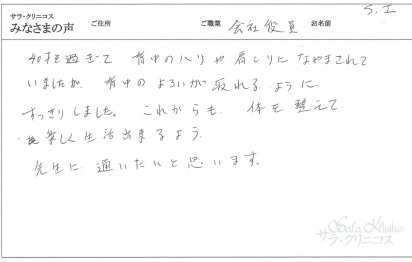 サラ・クリニコス
みなさまの声
ご住所
ご職業 会社役員
お名前 S.I
40才を過ぎて、背中のハリや肩こりになやまされて
いましたが、背中のよろいが取れるように
すっきりしました。これからも、体を整えて
楽しく生活出来るよう
先生に通いたいと思います。
Sala Klinikos
サラ・クリニコス